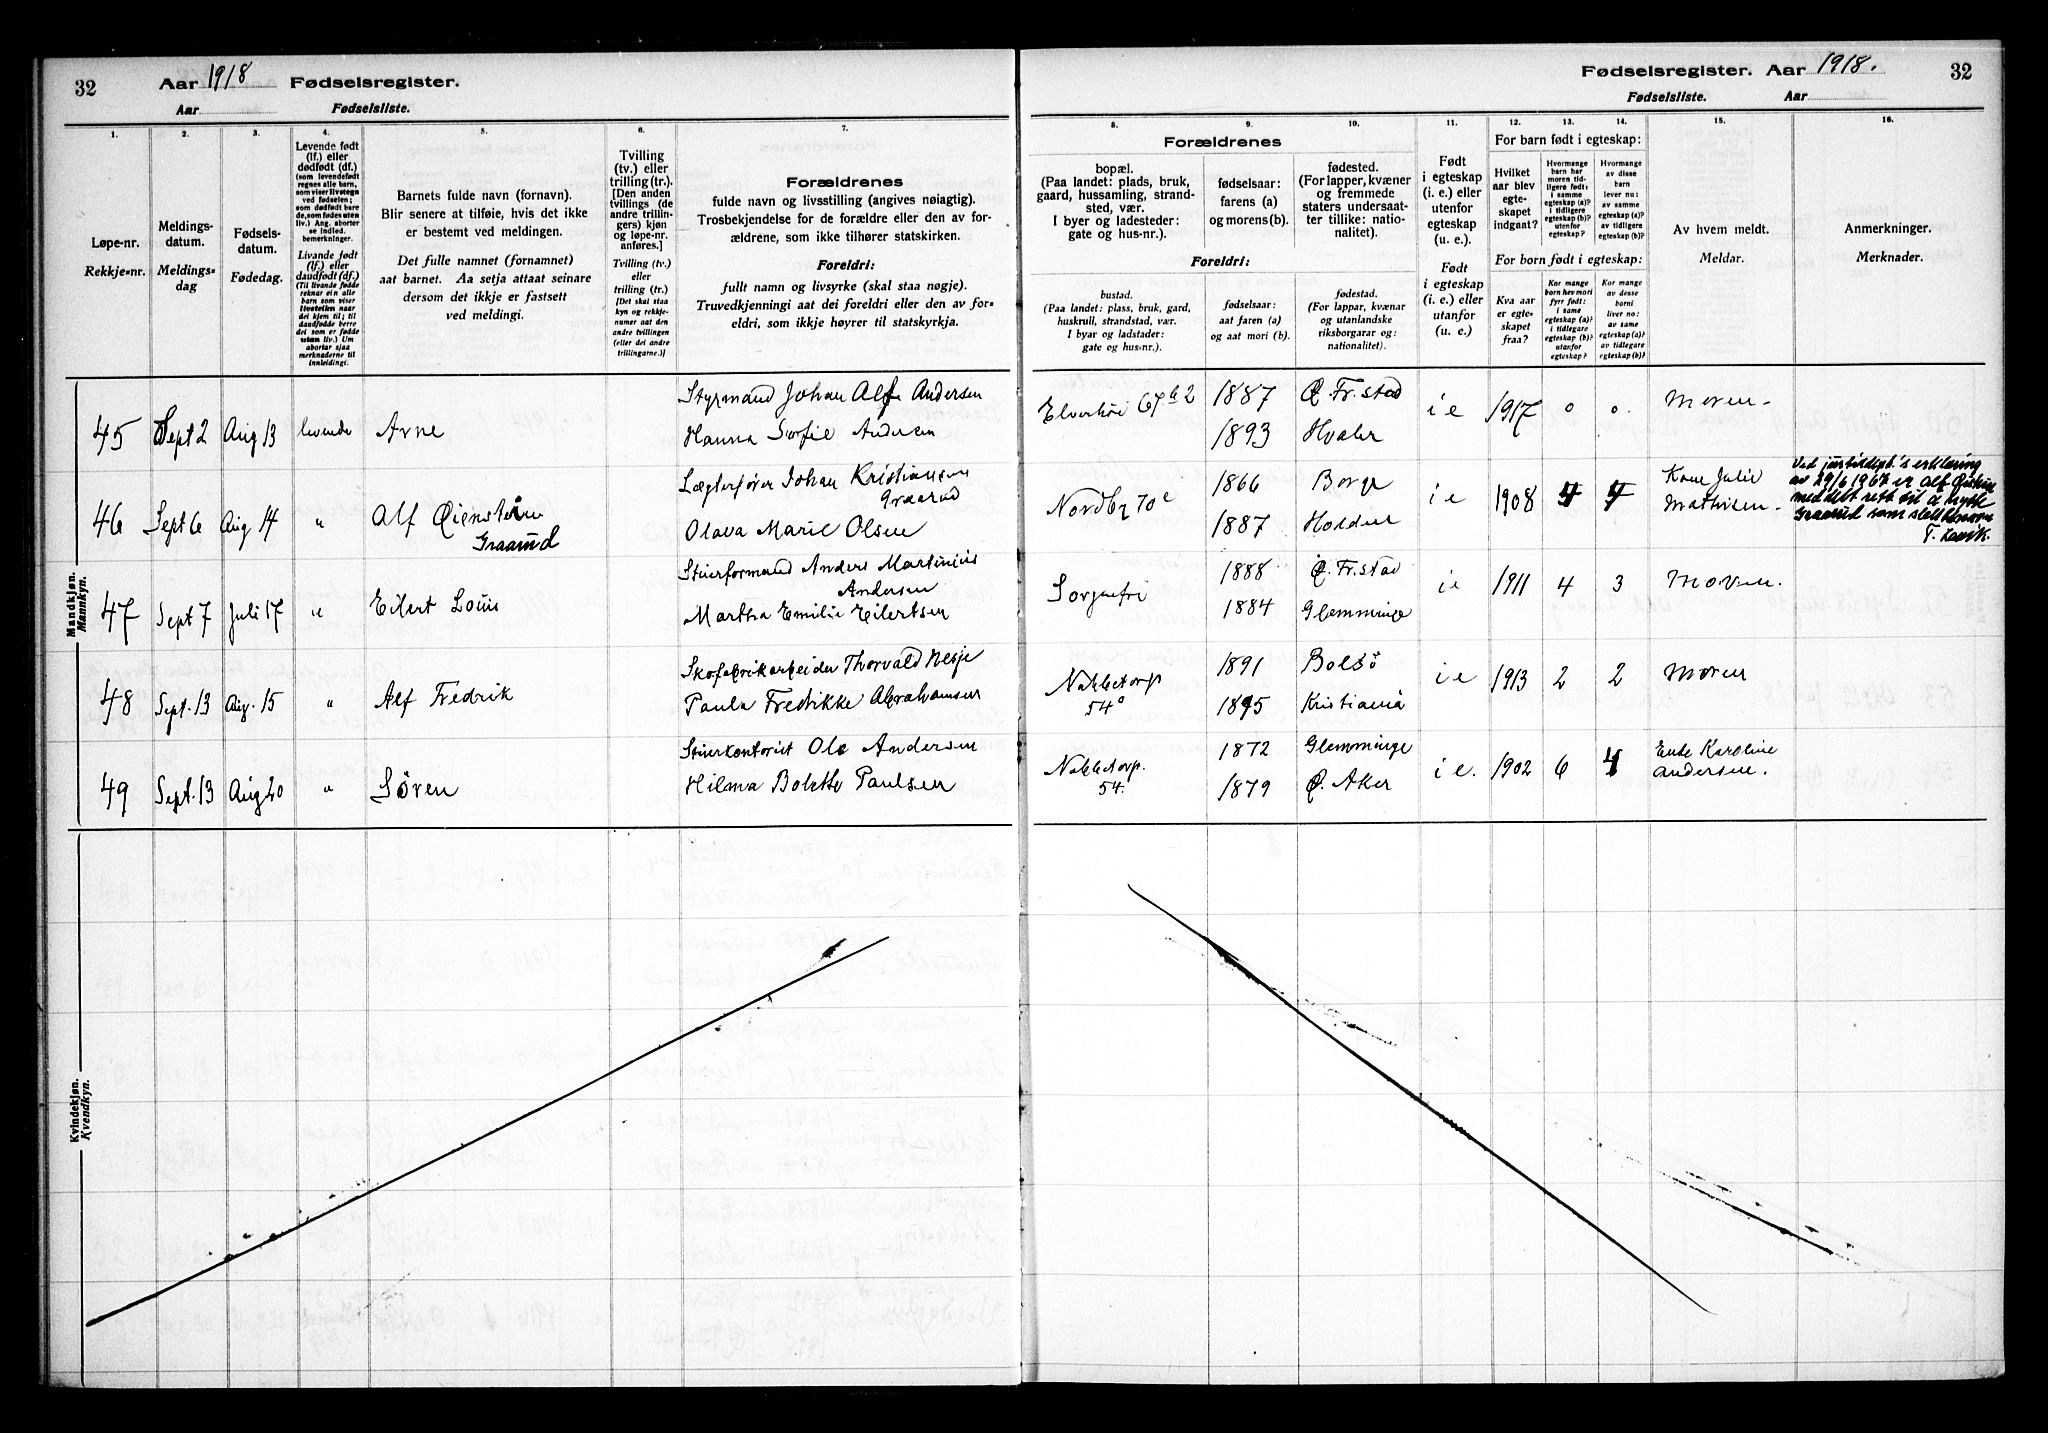 32 Aar 1918 Fødselsregister.
Aar Fødselsliste.
1. 2. 3. 4. 5. 6. 7.
Løpe-nr.
Rekkje-nr.
Meldings-
datum.
Meldings-
dag
Fødsels-
datum.
Fødedag.
Levende født
(lf.) eller
dødfødt (df.)
(som levendefødt
regnes alle barn,
som viser livstegn
ved fødselen;
som dødfødt bare
de, som fødes uten
liv.) Ang. aborter
se indled.
bemerkninger.
Livande født
(lf.) eller
daudfødt (df.)
(Til livande fødde
reknar ein alle
barn som viser
livsteikn naar
dei kjem til; til
daudfødde berre
dei som er fødde
utan liv.) Um
abortar sjaa
merknaderne til
innleidingi.
Barnets fulde navn (fornavn).
Blir senere at tilføie, hvis det ikke
er bestemt ved meldingen.
Det fulle namnet (fornamnet)
aat barnet. Aa setja attaat seinare
dersom det ikkje er fastsett
ved meldingi.
Tvilling
(tv.) eller
trilling (tr.).
[Den anden
tvillings (de
andre trillin-
gers) kjøn
og løpe-nr.
anføres.]
Tvilling (tv.)
eller
trilling (tr.)
[Det skal staa
kyn og rekkje-
numer aat den
andre tvillingen
(eller dei andre
trillingarne.)]
Forældrenes
fulde navn og livsstilling (angives nøiagtig).
Trosbekjendelse for de forældre eller den av for-
ældrene, som ikke tilhører statskirken.
Foreldri:
fullt namn og livsyrke (skal staa nøgje).
Truvedkjenningi aat dei foreldri eller den av for-
eldri, som ikkje høyrer til statskyrkja.
Mandkjøn.
Mannkyn.
45 Sept 2 Aug 13 levende Arne
Styrmand Johan Alf Andersen
Hanna Sofie Andersen
46 Sept 6 Aug 14 " Alf Øienstein
Graarud
Lægterfører Johan Kristiansen
Graarud
Olava Marie Olsen
47 Sept 7 Juli 17 " Eilert Louis
Stuerformand Anders Martinius
Andersen
Martha Emilie Eilertsen
48 Sept. 13 Aug. 15 " Alf Fredrik
Skofabrikarbeider Thorvald Nesje
Paula Fredrikke Abrahamsen
49 Sept. 13 Aug 20 " Søren
Stuerkontorist Ole Andersen
Hilma Bolette Paulsen
Kvindekjøn.
Kvendkyn.
Fødselsregister. Aar 1918. 32
Fødselsliste. Aar
8. 9. 10. 11. 12. 13. 14. 15. 16.
Forældrenes
bopæl.
(Paa landet: plads, bruk,
gaard, hussamling, strand-
sted, vær.
I byer og ladesteder:
gate og hus-nr.).
fødselsaar:
farens (a)
og morens (b).
fødested.
(For lapper, kvæner
og fremmede
staters undersaat-
ter tillike: natio-
nalitet).
Foreldri:
bustad.
(Paa landet: plass, bruk, gard,
huskrull, strandstad, vær.
I byar og ladstader:
gate og hus-nr.).
fødselsaar:
aat faren (a)
og aat mori (b).
fødestad.
(For lappar, kvænar
og utanlandske
riksborgarar og:
nationalitet).
Født
i egteskap
(i. e.) eller
utenfor
egteskap
(u. e.).
Født
i egteskap
(i. e.) eller
utanfor
egteskap
(u. e.)
For barn født i egteskap:
Hvilket
aar blev
egte-
skapet
indgaat?
Hvormange
barn har
moren tid-
ligere født:
i samme
egteskap (a)?
i tidligere
egteskap (b)?
utenfor
egteskap?
Hvormange
av disse
barn
lever nu:
av samme
egteskap (a)?
av tidligere
egteskap (b)?
For born født i egteskap:
Kva aar
er egte-
skapet
fraa?
Kor mange
born hev mori
fyrr født:
i same
egteskap (a)?
i tidlegare
egteskap (b)?
utanfor
egteskap?
Kor mange
av desse
borni
liver no:
av same
egteskap (a)?
av tidlegare
egteskap (b)?
Av hvem meldt.
Meldar.
Anmerkninger.
Merknader.
1887 Ø. Fr.stad
1893 Hvaler
i e 1917 0 0. Moren.
Nordby 70e
1866 Borge
1887
i e 1908 4 4
Kone Julie
Mathisen.
Ved justisdept.'s erklæring
av 29/6 1967 er Alf Øistein
meddelt rett til å bruke
Graarud som slektsnavn
Sorgenfri
1888 Ø. Fr.stad
1884 Glemminge
i e 1911 4 3 Moren.
Nabbetorp
54
1891 Bolsö
1895 Kristiania
i e 1913 2 2 Moren
Nabbetorp.
54.
1872 Glemminge
1879 Ø. Aker
i e. 1902 6 4
Enke Karoline
Andersen.